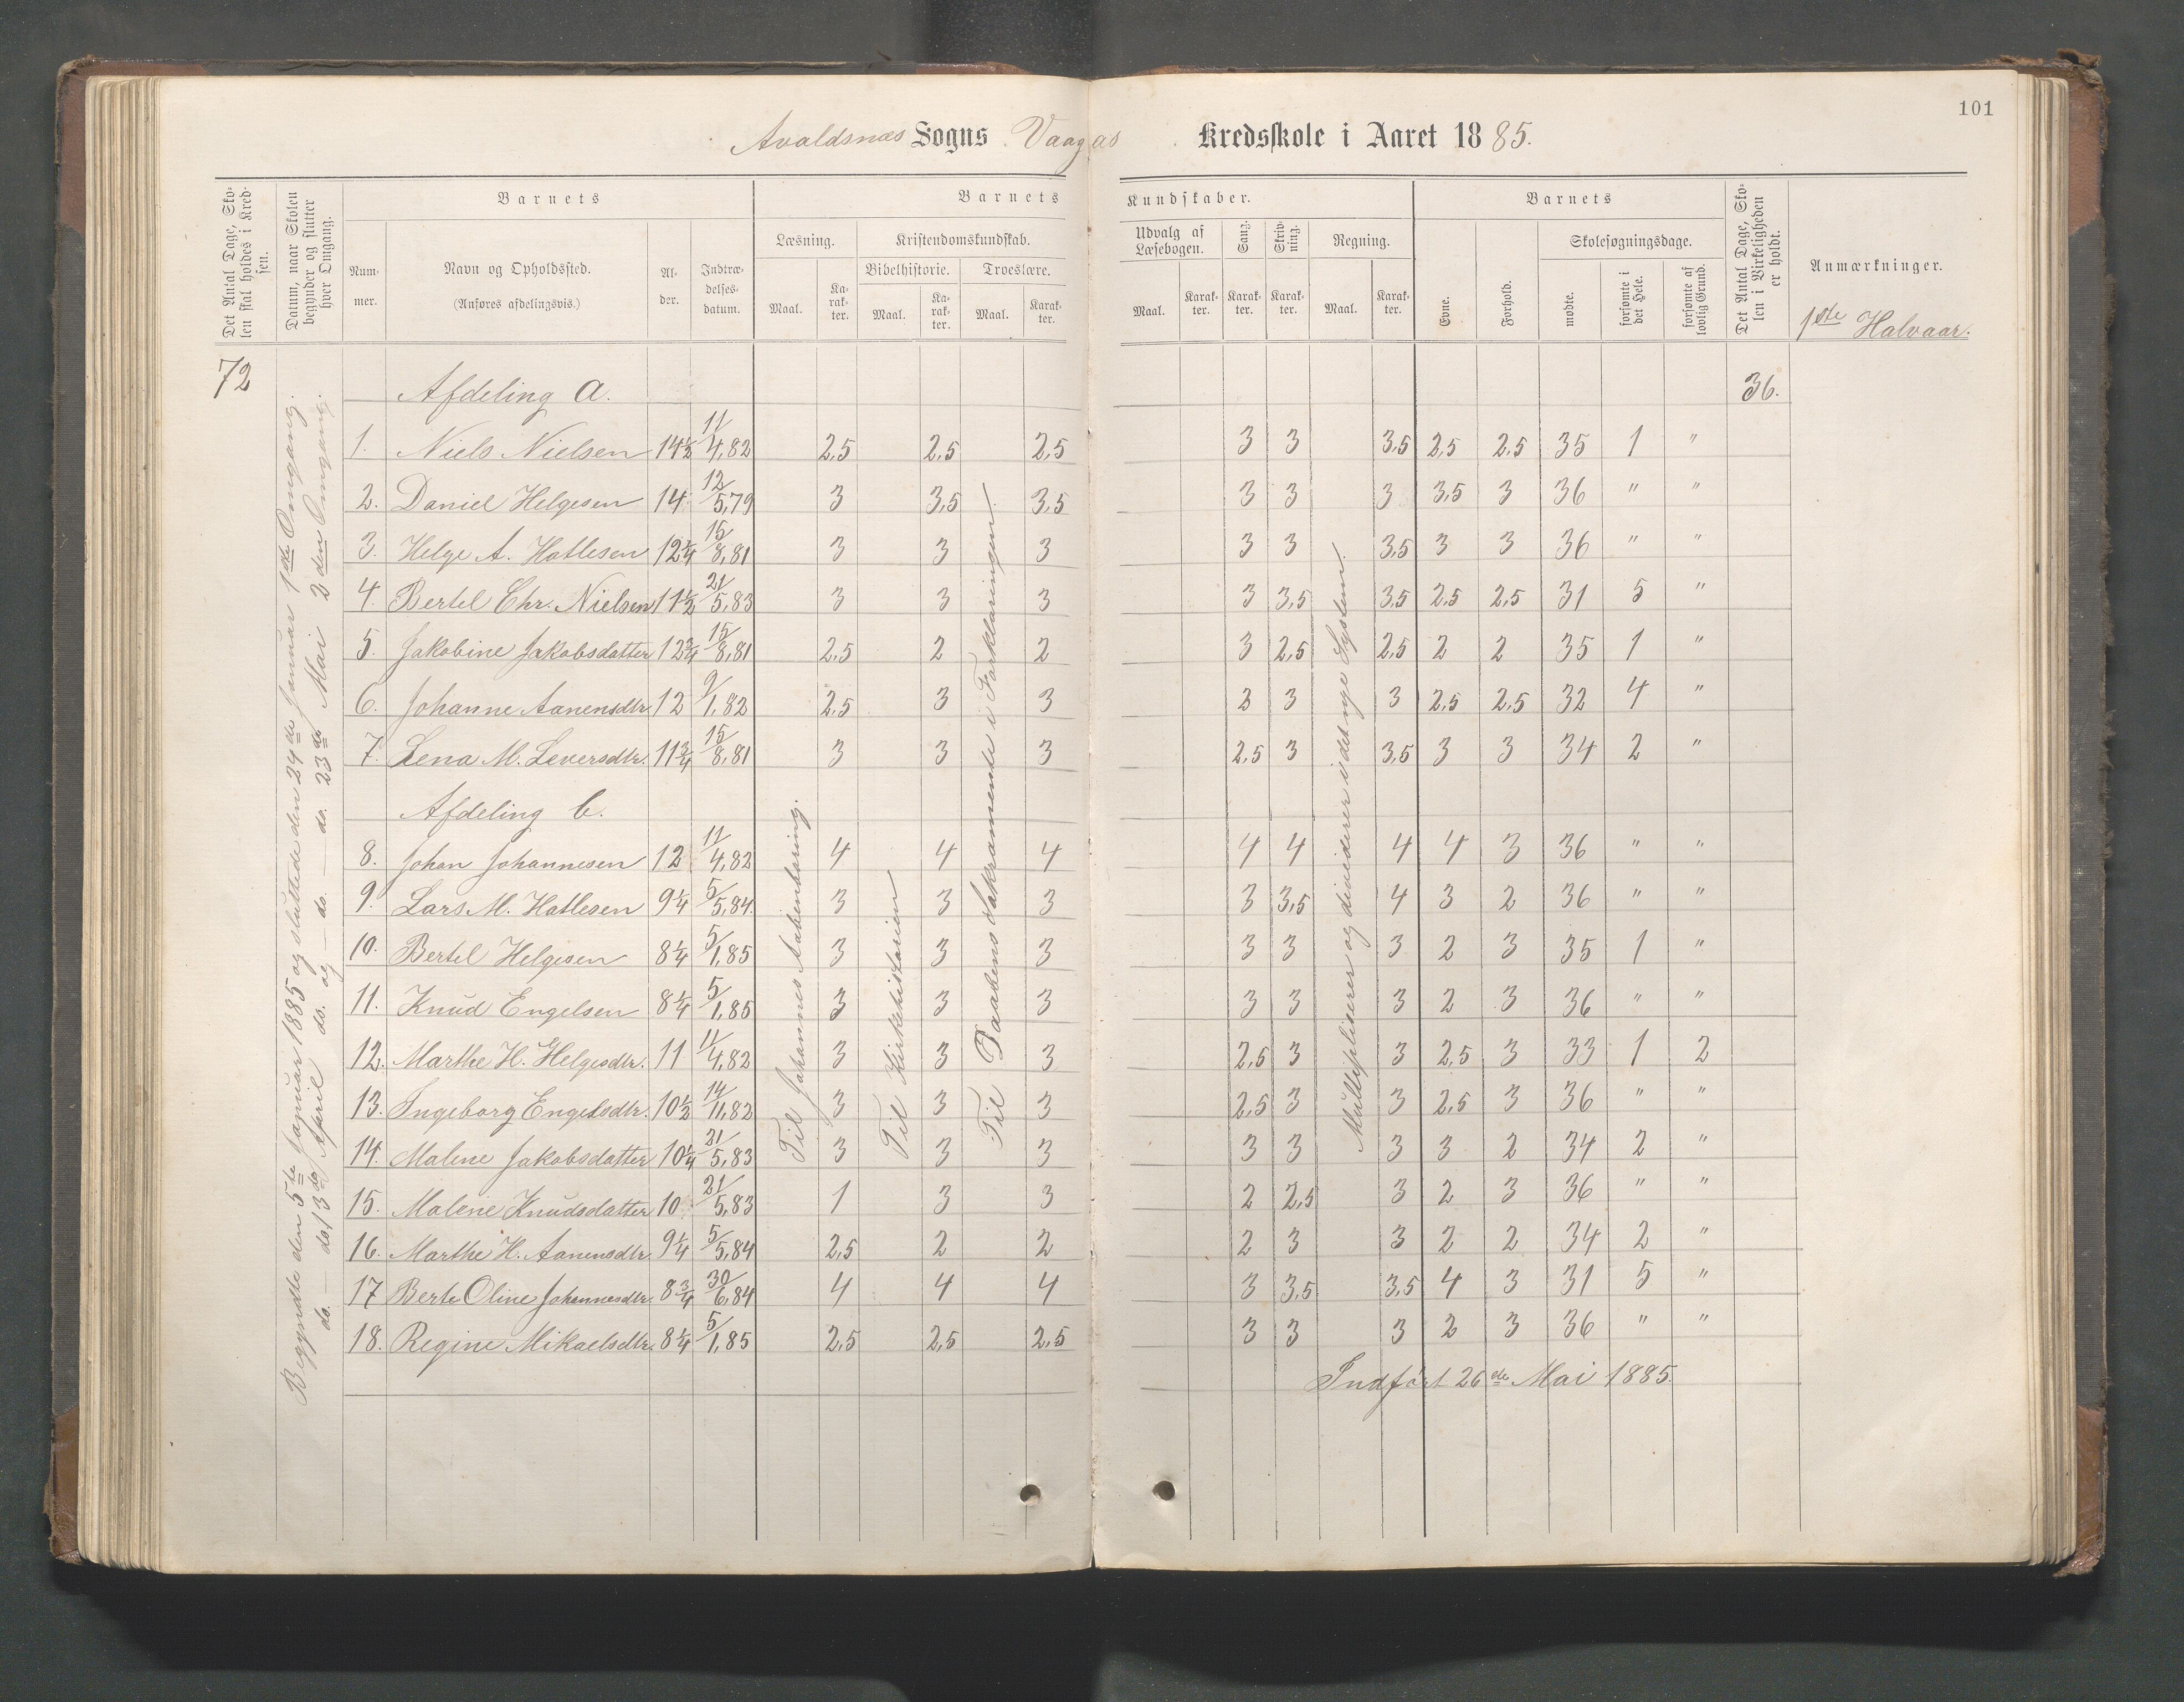 101
Avaldsnæs Sogns Vaagas Kredsskole i Aaret 1885.
Det Antal Dage, Skolen skal holdes i Kredsen.
Datum, naar Skolen begynder og slutter hver Omgang.
Barnets
Barnets Kundskaber.
Barnets
Det Antal Dage, Skolen i Virkeligheden er holdt.
Anmærkninger.
Nummer.
Navn og Opholdssted.
(Anføres afdelingsvis.)
Alder.
Indtrædelses-datum.
Læsning.
Kristendomskundskab.
Bibelhistorie.
Troeslære.
Udvalg af Læsebogen.
Sang.
Skrivning.
Regning.
Evne.
Forhold.
Skolesøgningsdage.
Maal. Karakter. Maal. Karakter. Maal. Karakter. Maal. Karakter. Karakter. Karakter. Maal. Karakter.
mødte.
forsømte i det Hele.
forsømte af lovlig Grund.
1ste Halvaar.
72
Begyndte den 5te Januar 1885 og sluttede den 24de Januar 1ste Omgang.
do. — do. 13de April do. og — do. — do. 23de Mai 2den Omgang.
Afdeling a. 36.
1. Niels Nielsen 14½ 11/4,82 2,5 2,5 2,5 3 3 3,5 2,5 2,5 35 1 "
2. Daniel Helgesen 14 12/5,79 3 3,5 3,5 3 3 3 3,5 3 36 " "
3. Helge A. Hatlesen 12¼ 15/8,81 3 3 3 3 3 3,5 3 3 36 " "
4. Bertel Chr. Nielsen 11½ 21/5,83 3 3 3 3 3,5 3,5 2,5 2,5 31 5 "
5. Jakobine Jakobsdatter 12¾ 15/8,81 2,5 2 2 3 2,5 2,5 2 2 35 1 "
6. Johanne Aanensdtr. 12 9/1,82 2,5 3 3 3 3 3 2,5 2,5 32 4 "
7. Lena M. Leversdtr. 11¾ 15/8,81 3 3 3 2,5 3 3,5 3 3 34 2 "
Afdeling b.
8. Johan Johannesen 12 11/4,82 4 4 4 4 4 4 4 3 36 " "
9. Lars M. Hatlesen 9¼ 5/5,84 3 3 3 3 3,5 4 3 2 36 " "
10. Bertel Helgesen 8¼ 5/1,85 3 3 3 3 3 3 2 3 35 1 "
11. Knud Engelsen 8¼ 5/1,85 3 3 3 3 3 3 2 3 36 " "
12. Marthe H. Helgesdtr. 11 11/4,82 3 3 3 2,5 3 3 2,5 3 33 1 2
13. Ingeborg Engelsdtr. 10½ 14/11,82 3 3 3 2,5 3 3 2,5 3 36 " "
14. Malene Jakobsdatter 10¼ 21/5,83 3 3 3 3 3 3 3 2 34 2 "
15. Malene Knudsdatter 10 21/5,83 1 3 3 2 2,5 3 2 3 36 " "
16. Marthe H. Aanensdtr. 9¼ 5/5,84 2,5 2 2 2 3 3 2 2 34 2 "
17 Berte Oline Johannesdtr. 8¾ 30/6,84 4 4 4 3 3,5 3,5 4 3 31 5 "
18. Regine Mikaelsdtr. 8¼ 5/1,85 2,5 2,5 2,5 3 3 3 2 3 36 " "
Til Johannes Aabenbaring.
Til Kirkehistorien
Til Daabens Sakramente i Forklaringen.
Multiplicerer og dividerer i det nye System.
Indført 26de Mai 1885.